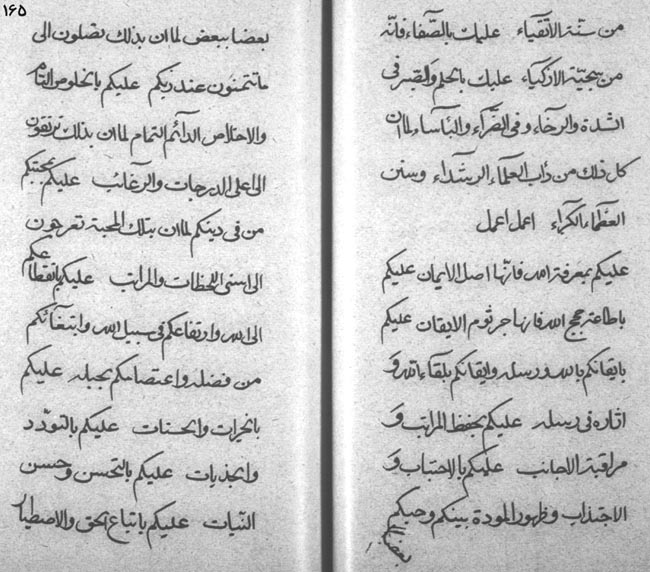 من سنة الاتقياء عليك بالصفاء فانه
من سجية الازكياء عليك بالحلم والصبر فى
الشدة والرخاء وفى الضراء والبأساء لما ان
كل ذلك من دأب العلماء الرشداء وسنن
العظماء الكراء اعمل اعمل
عليكم بمعرفة الله فانها اصل الايمان عليكم
باطاعة حجج الله فانها جرثوم الايقان عليكم
بايقانكم بالله ورسله وايقانكم بلقاء الله و
اثاره فى رسله عليكم بحفظ المراتب و
مراقبة الاجانب عليكم بالاحتباب و
الاجتذاب وظهور المودة بينكم وحبكم
بعضكم
١٦٥
بعضا ببعض لما ان بذلك تصلون الى
ما تتمنون عند ربكم عليكم بالخلوص التام
والاخلاص الدائم التمام لما ان بذلك ترتقون
الى اعلى الدرجات والرغائب عليكم بمحبتكم
من فى دينكم لما ان بتلك المحبة تعرجون
الى اسنى اللحظات والمراتب عليكم بانقطاعكم
الى الله وارتفاعكم فى سبيل الله وابتغائكم
من فضله واعتصامكم بحبله عليكم
بالخيرات والحسنات عليكم بالتودد
والجذبات عليكم بالتحسن وحسن
النيات عليكم باتباع الحق والاصطبار